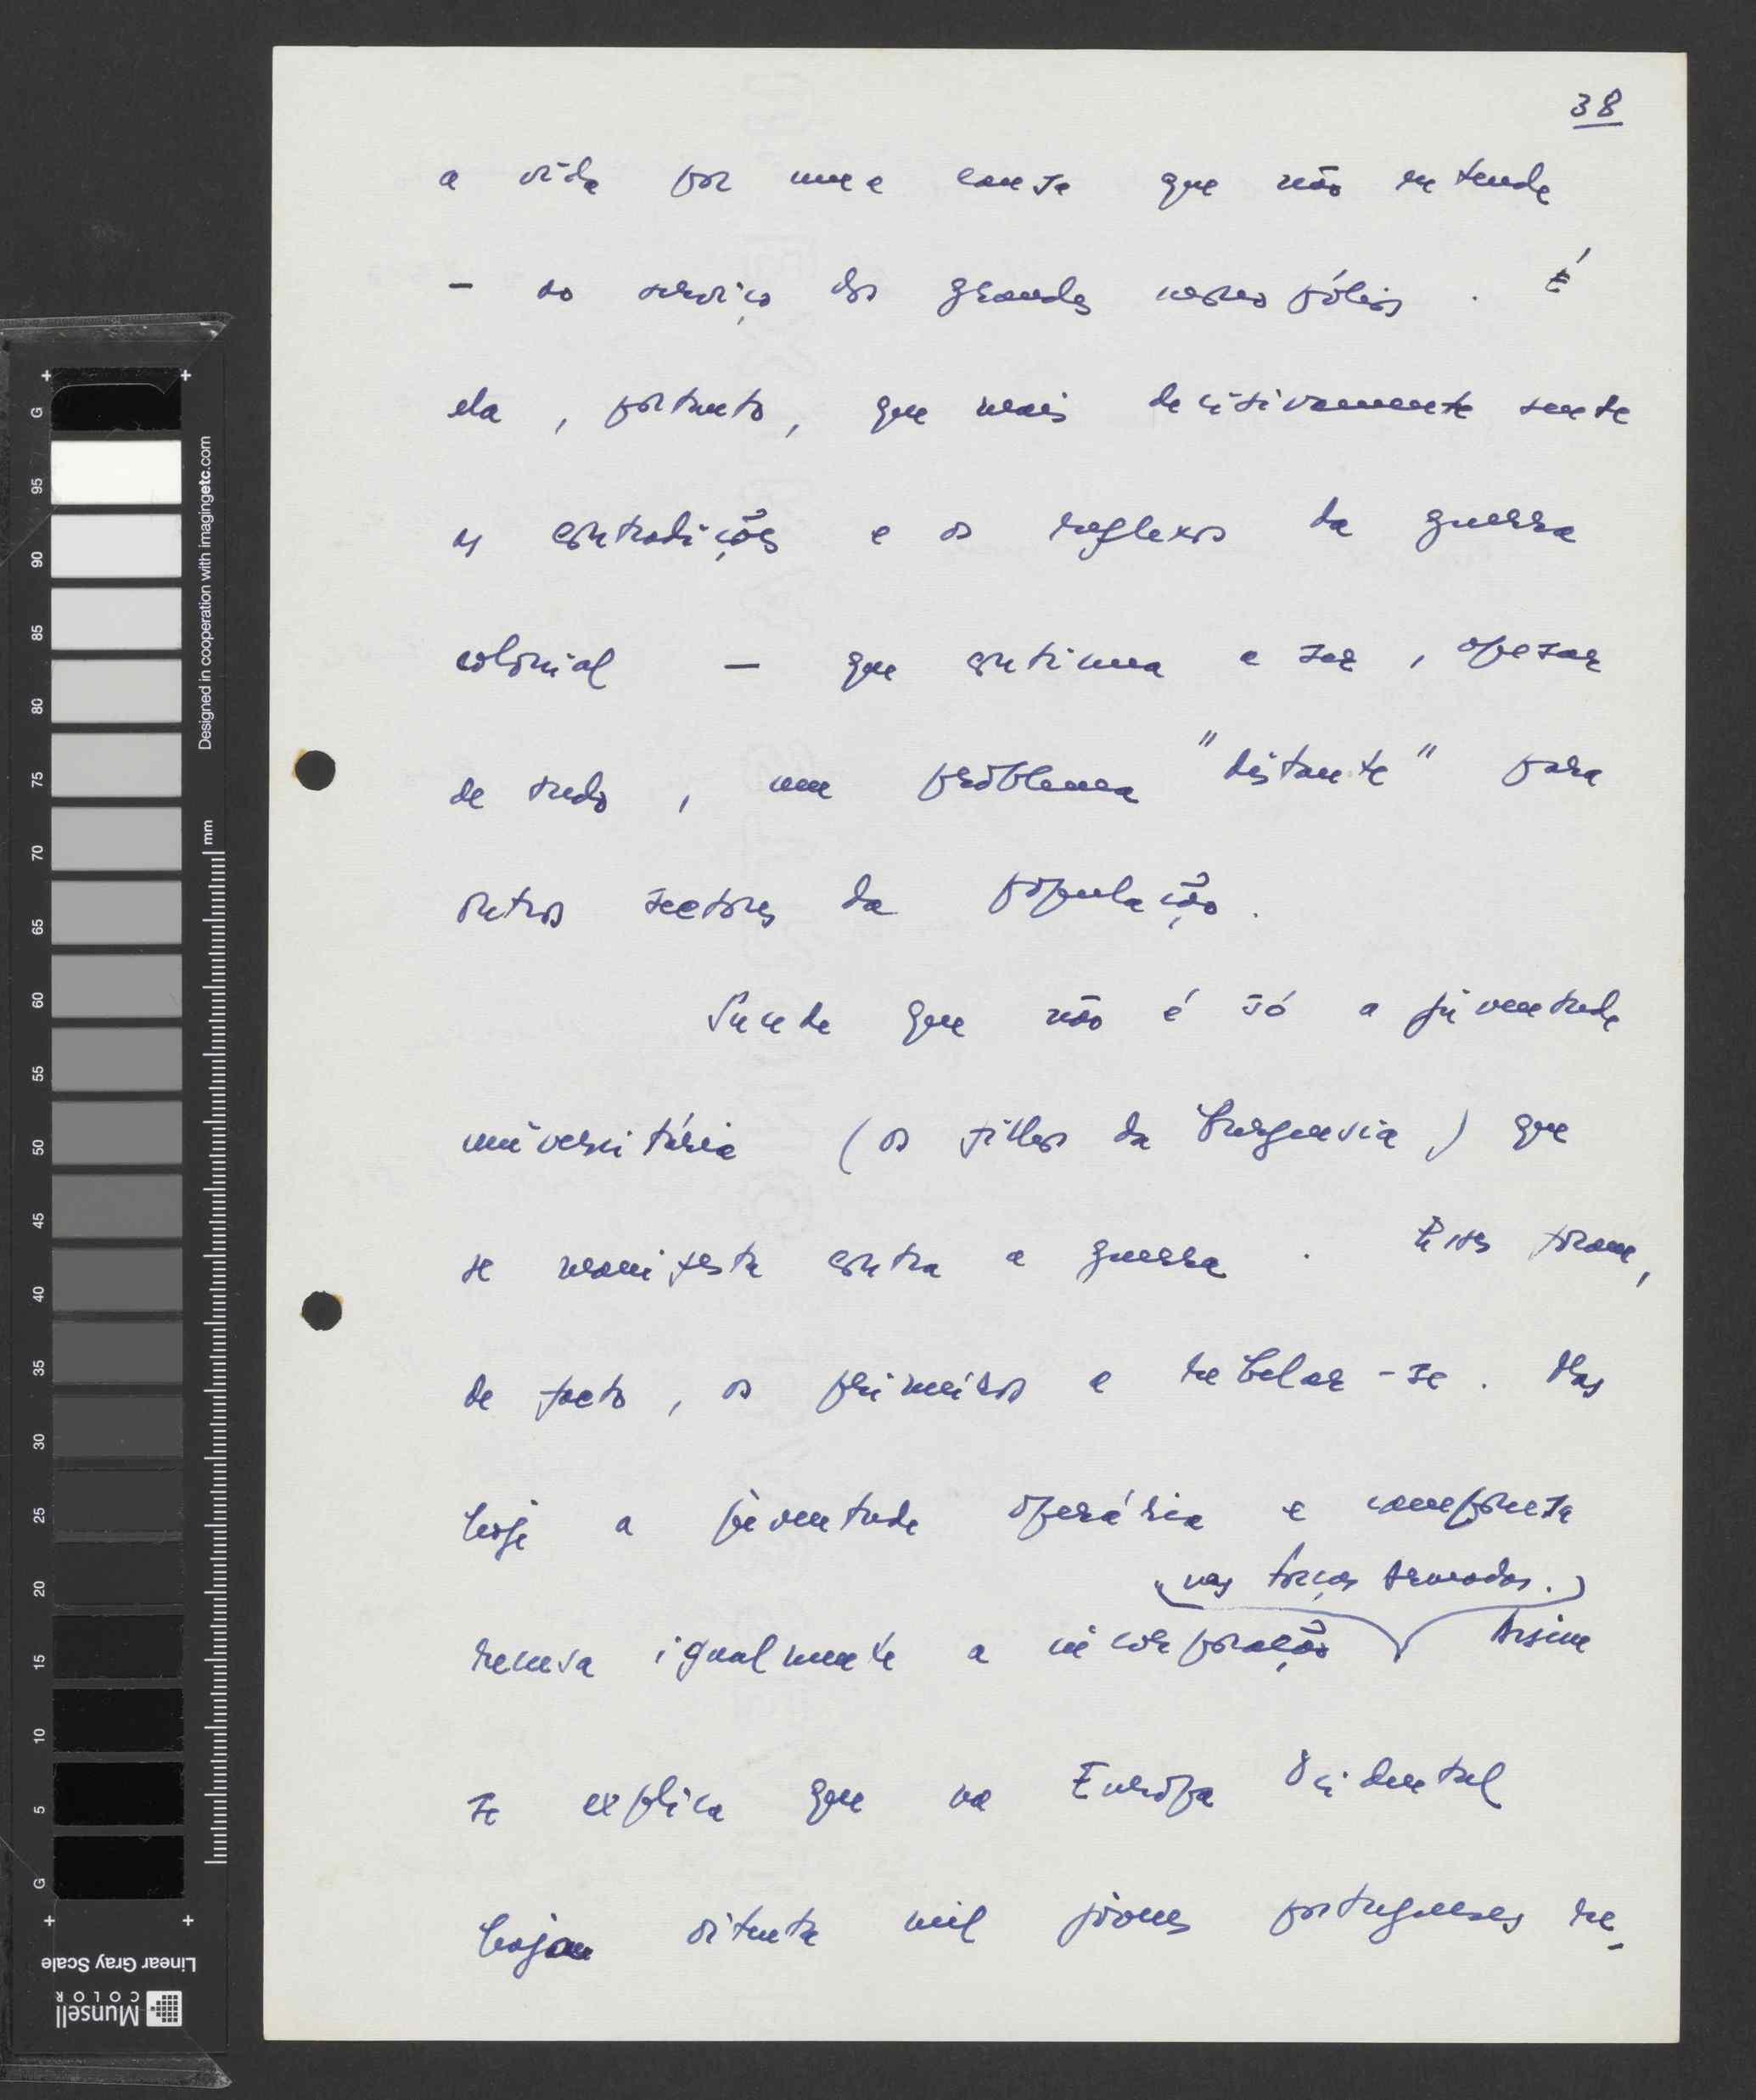 38
a vida por uma causa que não entende
- ao serviço dos grandes monopólios. É
ela, portanto, que mais decisivamente sente
as contradições e os reflexos da guerra
colonial — que continua a ser, apesar
de tudo, um problema "distante" para
outros sectores da população.
Sucede que não é só a juventude
universitária (os filhos da burguesia) que
se manifesta contra a guerra. Esses foram,
de facto, os primeiros a rebelar-se. Mas
hoje a juventude operária e camponesa
nas forças armadas.
recusa igualmente a incorporação Assim
se explica que na Europa Ocidental
hajam oitenta mil jovens portugueses re-
G
95
90
85
80
75
70
65
60
55
50
45
40
35
30
25
20
15
10
5
G
mm
Designed in cooperation with imagingetc.com
Linear Gray Scale
Munsell
COLOR